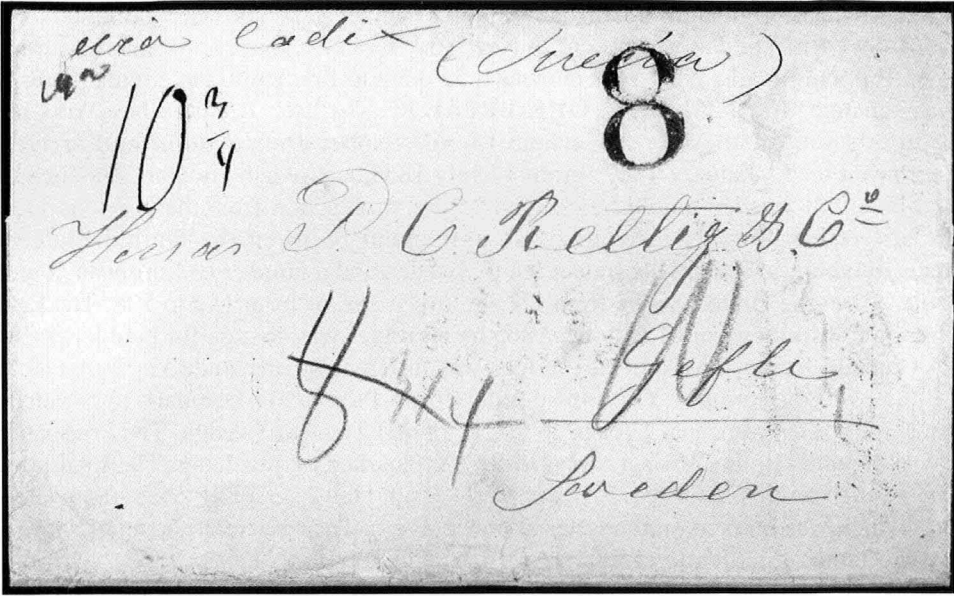 via Cadix (Suecia)
8
10 3/4
Herrar P. C. Rettig & Cº
8 3/4
Gefle
Sweden